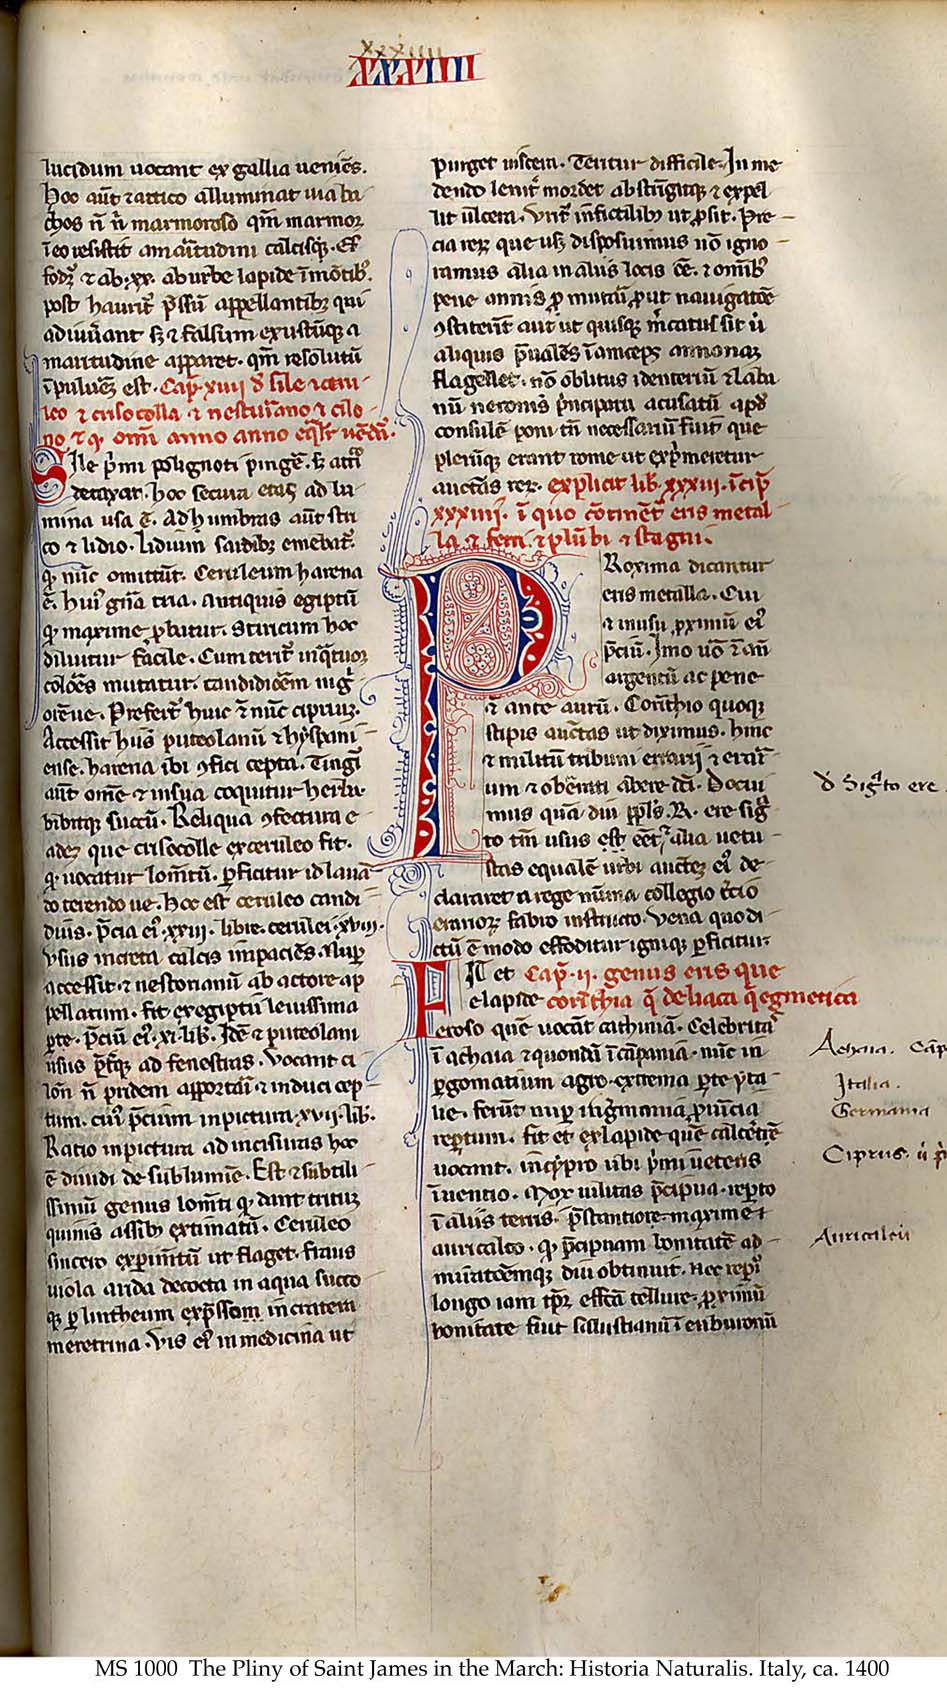 xxxiiii
XXXIIII
lucidum uocant ex gallia ueniēs.
Hoc aūt ⁊ attico alluminat uia ba
chos ñ ñ marmoroso qm̄ marmor
īeo resistit amaritudini calcisq̨. Ef
fodr̄ ⁊ ab .xx. ab urbe lapide ī mōtibꝰ.
post haurit̄ p̄ssū appellantibꝫ qui
adiuūant sꝫ ⁊ falsum ex ustūqꝫ a
maritudine apparet. qm̄ resolutū
ī puluerē est. Cap̄. xiiii d̄ sile ⁊ ceru
leo ⁊ crisocolla ⁊ nesturiano ⁊ cilo
no ⁊ qꝫ omī anno anno eq̄lr̄ uēdū.
SIle p̄mi polignoti pingē. sꝫ attī
detaxat. hoc secuta etas ad lu
mina usa ē. Ad h̨ umbras aūt stri
co ⁊ lidio. Lidium sardibꝫ emebat̄.
qꝫ nūc omittūt. Ceruleum harena
ē. huiꝰ gn̄a tria. Antiquis egiptū
qꝫ maxime ꝓbatur. Sticicum hoc
diluitur facile. Cum terit̄ inq̄tuor
colōēs mutatur. candidiōem nigͥ
orēue. Prefert̄ huic ⁊ nūc cipriuꝫ.
Accessit hiis puteolanū ⁊ hyspani
ense. harena ibi ɔfici cepta. Tingī
aūt om̄e ⁊ insua coquitur herba
bibitqꝫ succū. Reliqua ɔfectura e
adeꝫ que crisocolle ex ceruleo fit.
qꝫ uocatur lomētū. ꝑficitur id lauā
do terendo ue. Hoc est ceruleo candi
diūs. p̄cia eiꝰ .xxiii. libre. cerulei .xviii.
Vsus in creta calcis impaciēs. Nuꝑ
accessit ⁊ nestorianū ab actore ap
pellatum. fit ex egiptū leuissima
ꝑte. p̄cium eiꝰ .xi. lib̄. Idē ⁊ puteolani
usus p̄t̄q̨ ad fenestras. Vocant ci
lōn ñ pridem apportari ⁊ induci cep
tum. cuiꝰ p̄cium in pictura .xvii. lib̄.
Ratio in pictura ad incisuras hoc
ē diuidi de sublumīe. Est ⁊ subtili
ssimū genus lomēti qꝫ dant trituꝫ
quinis assibꝫ extimatū. Ceruleo
sincero experimētū ut flaget. fraus
uiola arida decocta in aqua succo
qꝫ ꝑ lintheum exp̄ssom in cratera
meretrina. Vis eiꝰ in medicina ut
purget uiscera. Teritur difficile. In me
dendo lenit̄ mordet abstringitqꝫ ⁊ expel
lit ūlcera. Vrit̄ in fictilibꝫ ut ꝓsit. Pre
cia reꝝ que usꝫ disposuimus nō igno
ramus alia in aliis locis ēē. ⁊ omībꝫ
pene annis ꝓ mutari ꝓut nauigatōe
ɔstiterit aut ut quisqꝫ m̄catus sit ū
aliquis p̄ualēs ī anceps annonaꝫ
flagellet. nō oblitus idemeriū ⁊ labi
nū neronis p̄ncipatu acusatū apd̄
consulē poni tn̄ necessariū fuit que
pleriūqꝫ erant rome ut exp̄meretur
auctās rer. explicit lib̄. xxxiii. īcip̄
xxxiiii. ī quo cōtinet̄ eris metal
la. ⁊ ferri. ⁊ plūbi ⁊ stagni.
PRoxima dicantur
eris metalla. Cui
⁊ inusu ꝓximū eiꝰ
p̄ciū. Imo uō ⁊ an̄
argentū ac pene
⁊ ante aurū. Corīthio quoqꝫ
stipis auctās ut diximus. hinc
⁊ militū tribuni errarii ⁊ erari
um ⁊ oberati abere id̄. Docui
mus quā diu ppl̄s. R. ere sigͣ
to tm̄ usus esset. ⁊ alia uetu
stas equalē urbi auctēꝫ eiꝰ de
clararet a rege numa collegio t̄cio
erarioꝝ fabro instructo. Vena quo di
ctū ē modo effoditur igniqꝫ ꝑficitur.
FIt et Cap̄. ii. genus eris que
e lapide corīthia q̄ deliaca q̄ egineticа
eroso quē uocāt cathimā. Celebritaͣ
ī achaia ⁊ quondū ī cāpania. nūc in
ꝑgomatium agro. extrema ꝑte yta
lie. ferūt nuꝑ ī igermania ꝓuīcia
reꝑtum. fit et ex lapide quē calcētrē
uocant. in cypro ubi p̄mi ueteris
īuentio. Mox uilitas p̄cipua. reꝑto
ī aliis terris. p̄stantiore. maxime ⁊
auricalco. qꝫ p̄cipuam bonitatē ad
mirateōemqꝫ diu obtinuit. Nec reperi
longo iam tꝑe effeta tellure. ꝓximū
bonitate fuit sillustianū ī euburonū
D̄ Sigͣto ere.
Achaia. Cāp
Italia.
Germania
Ciprus. ū p̄
Auricalcū
MS 1000 The Pliny of Saint James in the March: Historia Naturalis. Italy, ca. 1400